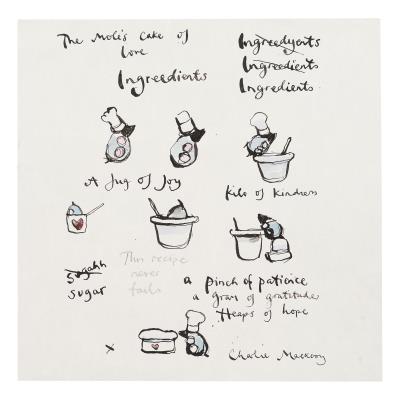 The Mole's cake of
love
Ingreedyents
Ingreedients
Ingredients
Ingreedients
A Jug of Joy
Kilo of kindness
Sugahh
sugar
This recipe
never
fails
a pinch of patience
a gram of gratitude
Heaps of hope
x
Charlie Mackesy